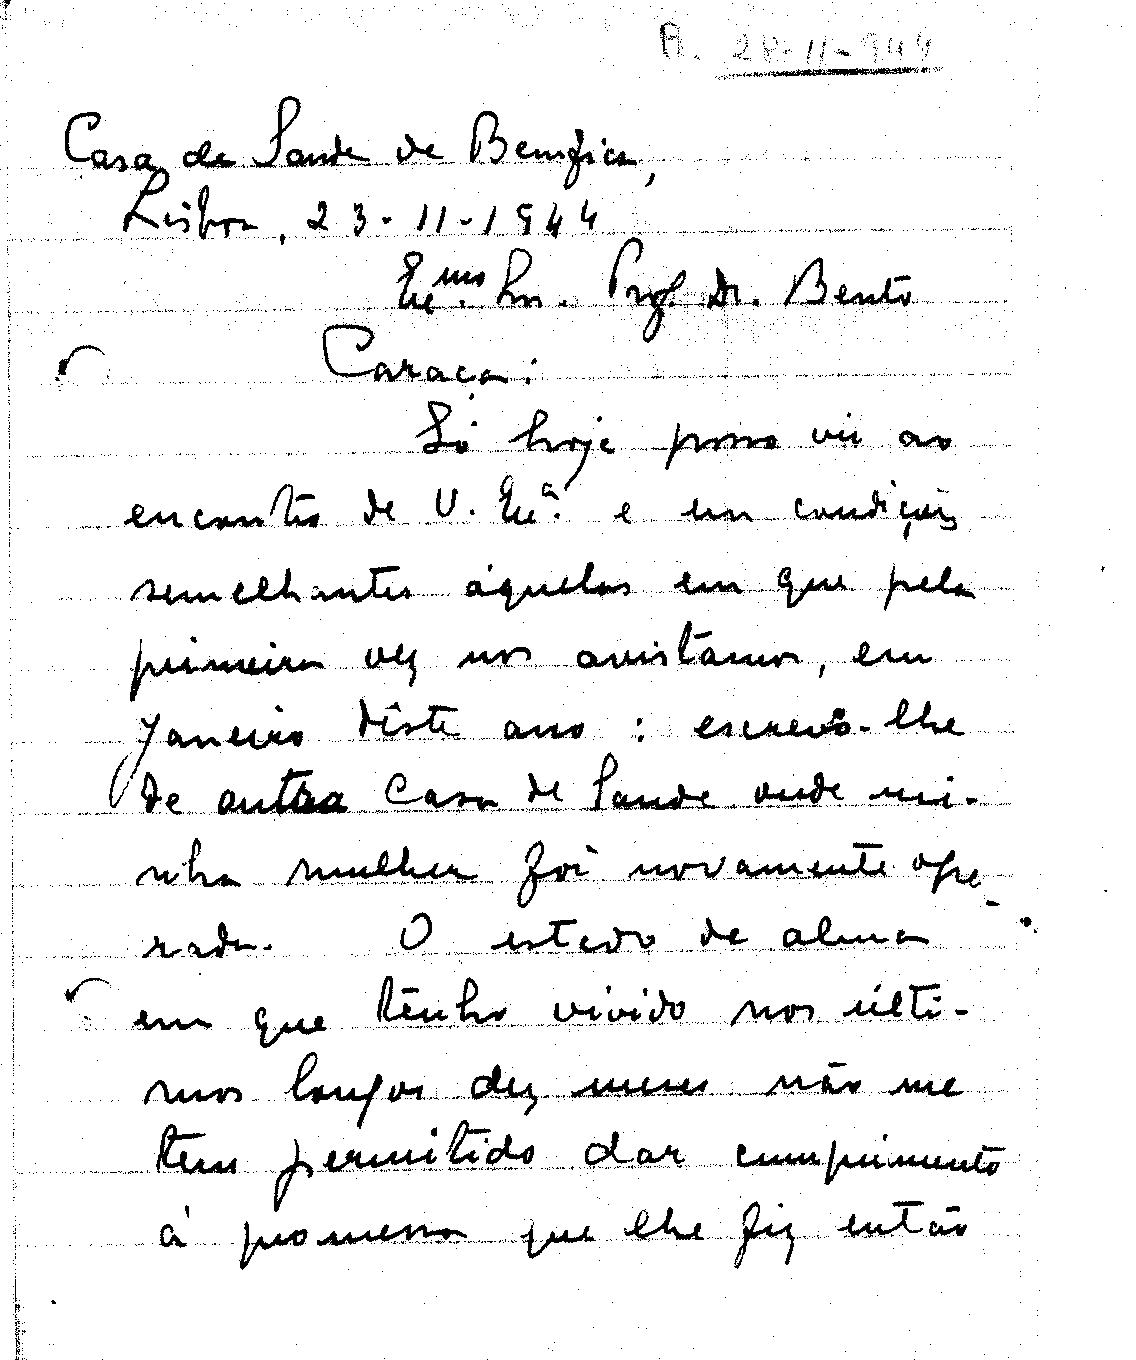 A. 28-11-944
Casa de Saude de Bemfica,
Lisboa, 23-11-1944
Ex.mo Snr. Prof. Dr. Bento
Caraça:
Só hoje posso vir ao
encontro de V. Ex.ª e em condições
semelhantes áquelas em que pela
primeira vez nos avistámos, em
Janeiro dêste ano: escrevo-lhe
de outra Casa de Saude onde mi-
nha mulher foi novamente ope-
rada. O estado de alma
em que tenho vivido nos últi-
mos longos dez meses não me
tem permitido dar cumprimento
á promessa que lhe fiz então